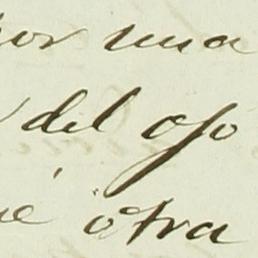 por una
del ojo
otra